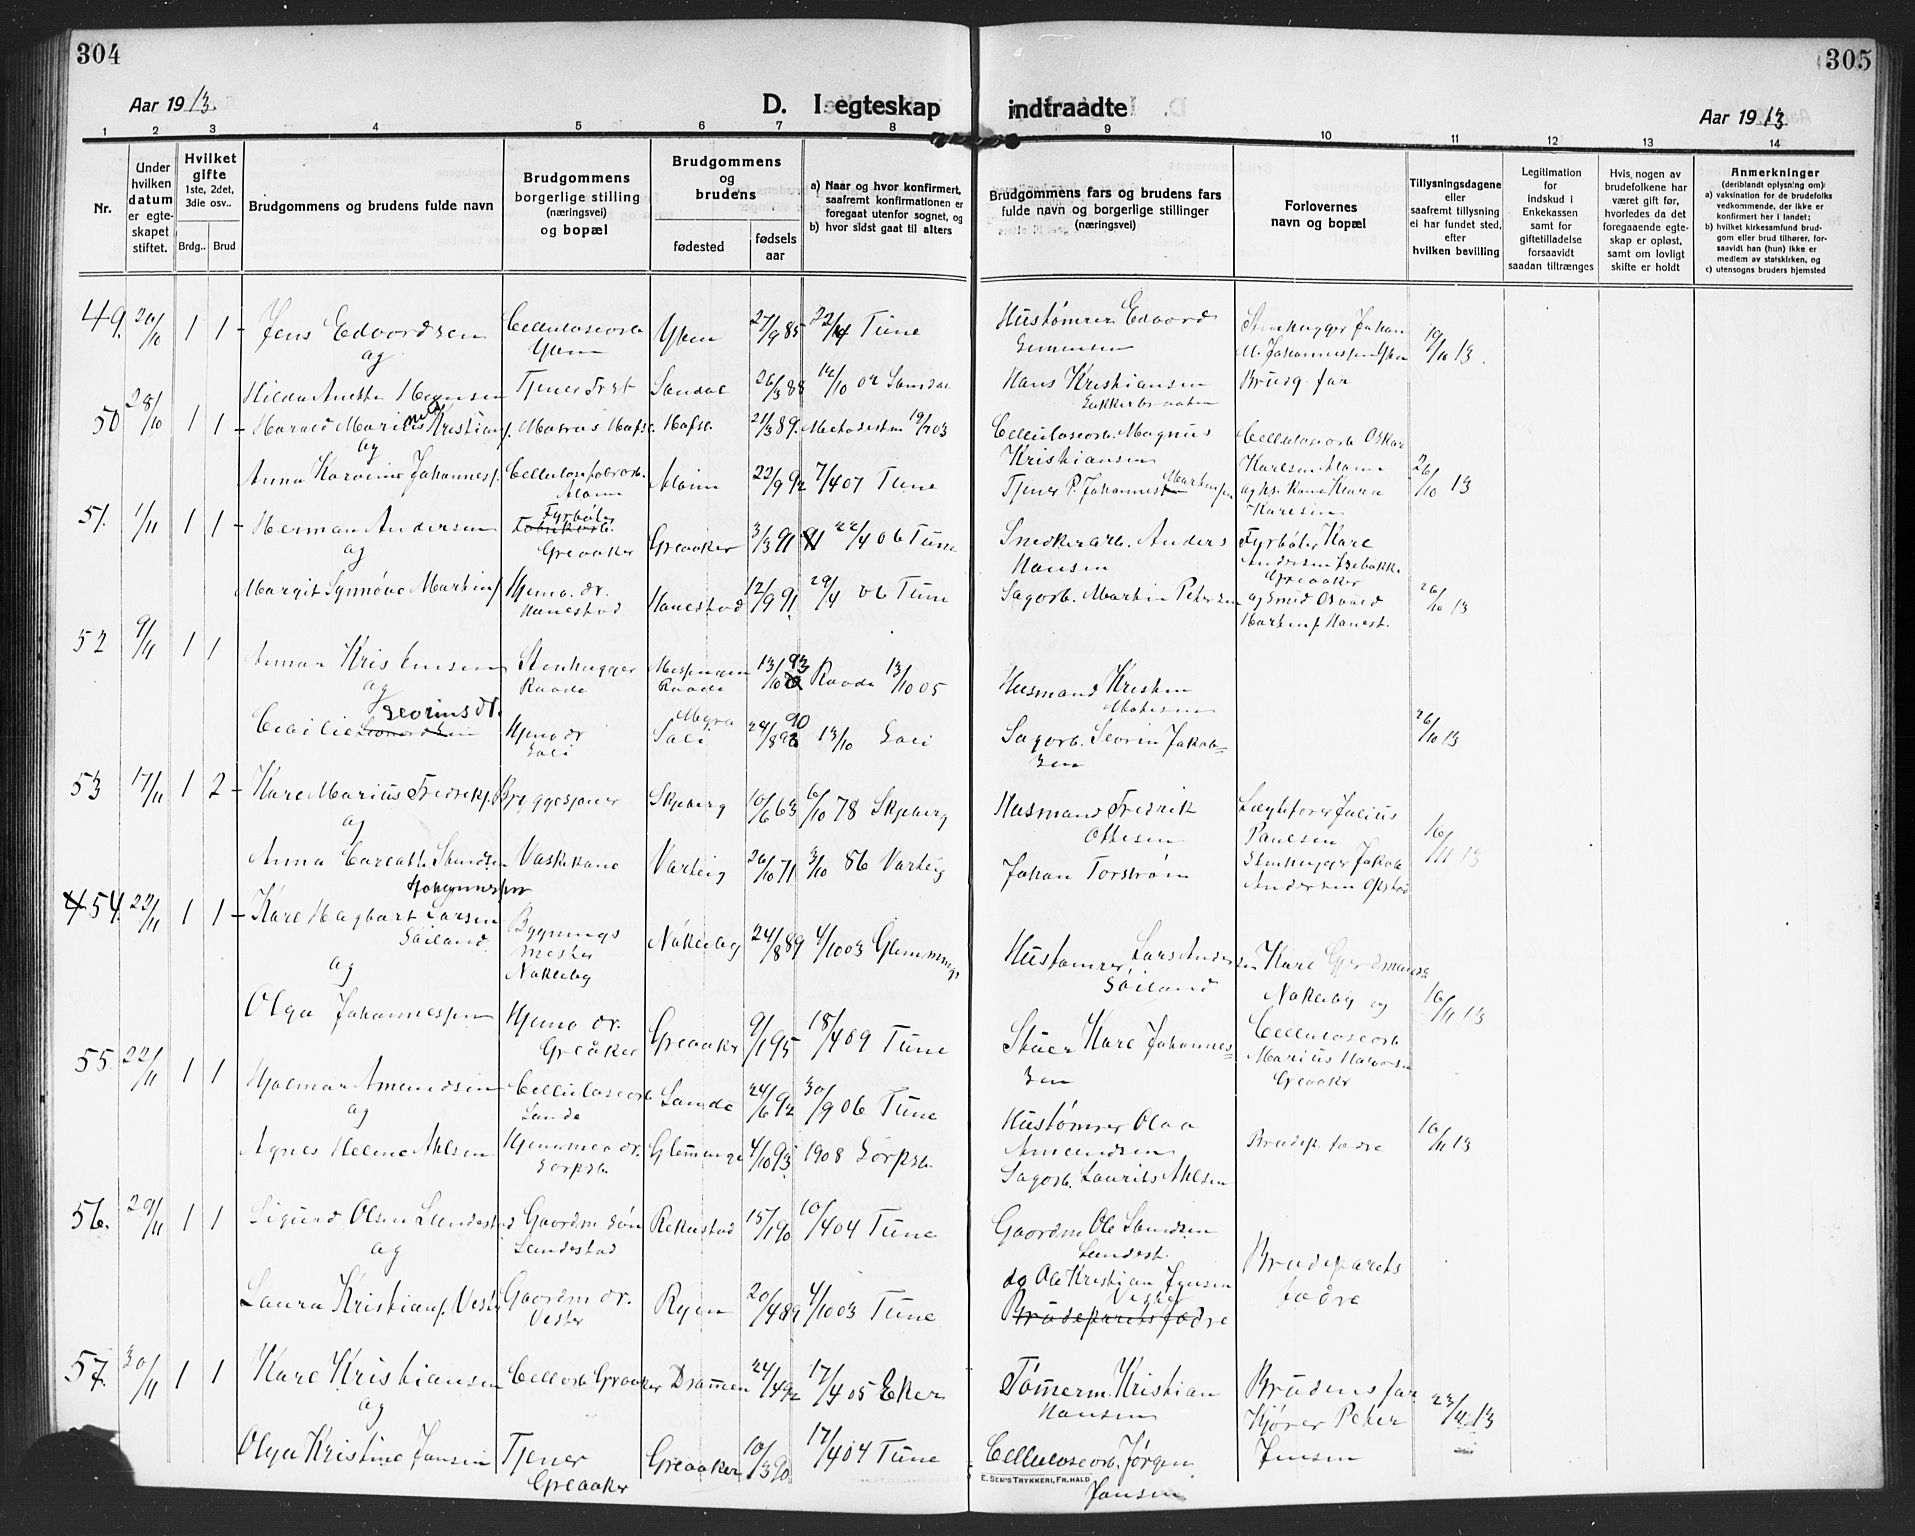 304
305
Aar 1913.
D. I egteskap
indtraadte
Aar 1913
1 2 3 4 5 6 7 8 9 10 11 12 13 14
Nr.
Under hvilken datum er egteskapet stiftet.
Hvilket gifte 1ste, 2det, 3die osv..
Brdg.. Brud
Brudgommens og brudens fulde navn
Brudgommens borgerlige stilling (næringsvei) og bopæl
Brudgommens og brudens
fødested
fødsels aar
a) Naar og hvor konfirmert, saafremt konfirmationen er foregaat utenfor sognet, og
b) hvor sidst gaat til alters
Brudgommens fars og brudens fars fulde navn og borgerlige stillinger (næringsvei)
Forlovernes navn og bopæl
Tillysningsdagene eller saafremt tillysning ei har fundet sted, efter hvilken bevilling
Legitimation for indskud i Enkekassen samt for giftetilladelse forsaavidt saadan tiltrænges
Hvis, nogen av brudefolkene har været gift før, hvorledes da det foregaaende egteskap er opløst, samt om lovligt skifte er holdt
Anmerkninger
(deriblandt oplysning om):
a) vaksination for de brudefolks vedkommende, der ikke er konfirmert her i landet;
b) hvilket kirkesamfund brudgom eller brud tilhører, forsaavidt han (hun) ikke er medlem av statskirken, og
c) utensogns bruders hjemsted
49. 26/10 1 1 Jens Edvardsen Cellulosearb. 27/9 85 Tune Hustømrer Edvard
og
Hilda Anette Hansen Tjener 26/3 88 Hans Kristiansen Brudg. far
50 28/10 1 1 Harald Marinus Kristians. 21/3 89. Metodisten 19/7 03 Cellulosearb. Magnus Cellulosearb. Oskar
og Kristiansen
Anna Karoline Johannes. Cellulosefabrarb. 22/9 92 7/4 07 Tune Tjener P. Johannes 26/10 13
51. 1/11 1 1 Herman Andersen Fyrbøter Greaaker Greaaker 3/3 91 22/4 06 Tune Snedkerarb. Anders Hansen Fyrbøter Karl
og Greaaker
Margit Synnøve Martins. Hjemv. dr. Hanestad Hanestad 12/9 91 29/4 06 Tune Sagarb. Martin Petersen og Smed Osvald 26/10 13
52 9/11 1 1 Kristensen Stenhugger Raade Raade 13/10 93 Raade 13/10 05 Husmand Kristen
og
Cecilie Severinsdt. Hjemv. dr Soli 24/8 90 13/10 Soli Sagarb. Severin Jakobsen 26/10 13
53 17/11 1 2 Karl Marius Fredriks. Bryggesjauer Skjeberg 10/6 63 6/10 78 Skjeberg Husmand Fredrik Ottesen Julius Paulsen
og
Anna Vaskekone Varteig 26/10 71 3/10 86 Varteig Johan Torstrøm Stenhugger Jakob Andersen Opstad 16/11 13
54. 22/11 1 1 Karl Hagbart Larsen Søiland Bygningsmester Nakleby Nakleby 24/8 89 4/10 03 Glemminge Hustømrer Lars Andersen Søiland Karl
og Nakleby og
Olga Johannessen Hjemv. dr. Greåker Greaaker 9/1 95 18/4 09 Tune Stuer Karl Johannessen Cellulosearb. Marius Greaaker 16/11 13
55. 22/11 1 1 Hjalmar Amundsen Cellulosearb. Sande Sande 24/6 92 30/9 06 Tune Hustømrer Olaa Amundsen
og
Agnes Helene Ahlsen Hjemmev. dr. Sorpsb. Glemminge 4/10 93 1908 Sorpsb. Sagarb. Laurits Ahlsen Brudep. fædre 16/11 13
56. 29/11 1 1 Sigurd Olsen Lundestad Gaardm. søn Lundestad Rekustad 15/1 90 10/4 04 Tune Gaardm. Ole Lundest.
og Brudeparets fædre
Laura Kristians. Vister Gaardm. dr. Vister Ryen 20/4 89 4/10 03 Tune do Ole Kristian Jensen Vister
Brudeparets fædre
57. 30/11 1 1 Karl Kristiansen Cellarb. Greaaker Drammen 24/4 92 17/4 05 Eker Tømmerm. Kristian Hansen Brudens far
og Kjører Peter Jensen 23/11 13
Olga Kristine Jansen Tjener Greaaker Greaaker 10/3 90 17/4 04 Tune Cellulosearb. Jørgen Jansen
E. SEM'S TRYKKERI, FR.HALD